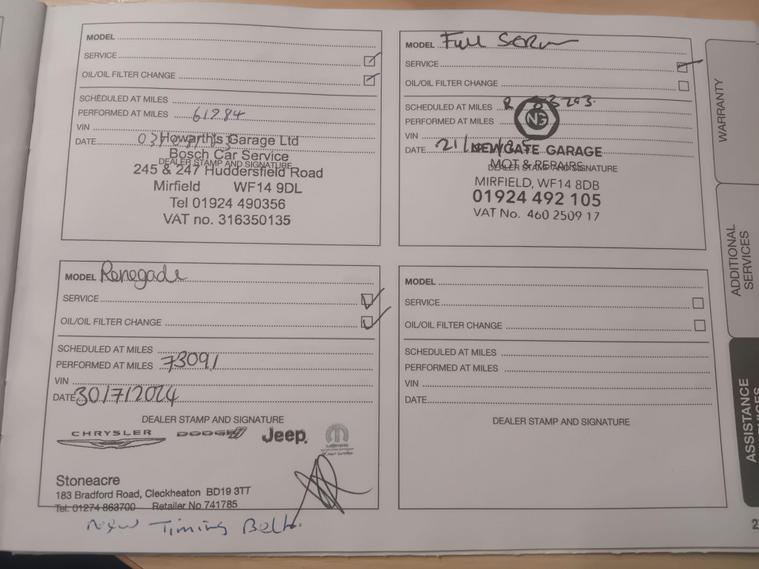 MODEL
SERVICE
OIL/OIL FILTER CHANGE
SCHEDULED AT MILES
PERFORMED AT MILES 61284
VIN
DATE
Howarth's Garage Ltd
Bosch Car Service
DEALER STAMP AND SIGNATURE
245 & 247 Huddersfield Road
Mirfield WF14 9DL
Tel 01924 490356
VAT no. 316350135
MODEL Full
SERVICE
OIL/OIL FILTER CHANGE
SCHEDULED AT MILES
PERFORMED AT MILES
NG
VIN
DATE
NEWGATE GARAGE
MOT & REPAIRS
DEALER STAMP AND SIGNATURE
MIRFIELD, WF14 8DB
01924 492 105
VAT No. 460 2509 17
MODEL Renegade
SERVICE
OIL/OIL FILTER CHANGE
SCHEDULED AT MILES
PERFORMED AT MILES 73091
VIN
DATE 30/7/2024
DEALER STAMP AND SIGNATURE
CHRYSLER DODGE Jeep
Stoneacre
183 Bradford Road, Cleckheaton BD19 3TT
Tel: 01274 863700 Retailer No 741785
New Timing Belt.
MODEL
SERVICE
OIL/OIL FILTER CHANGE
SCHEDULED AT MILES
PERFORMED AT MILES
VIN
DATE
DEALER STAMP AND SIGNATURE
WARRANTY
ADDITIONAL
SERVICES
ASSISTANCE